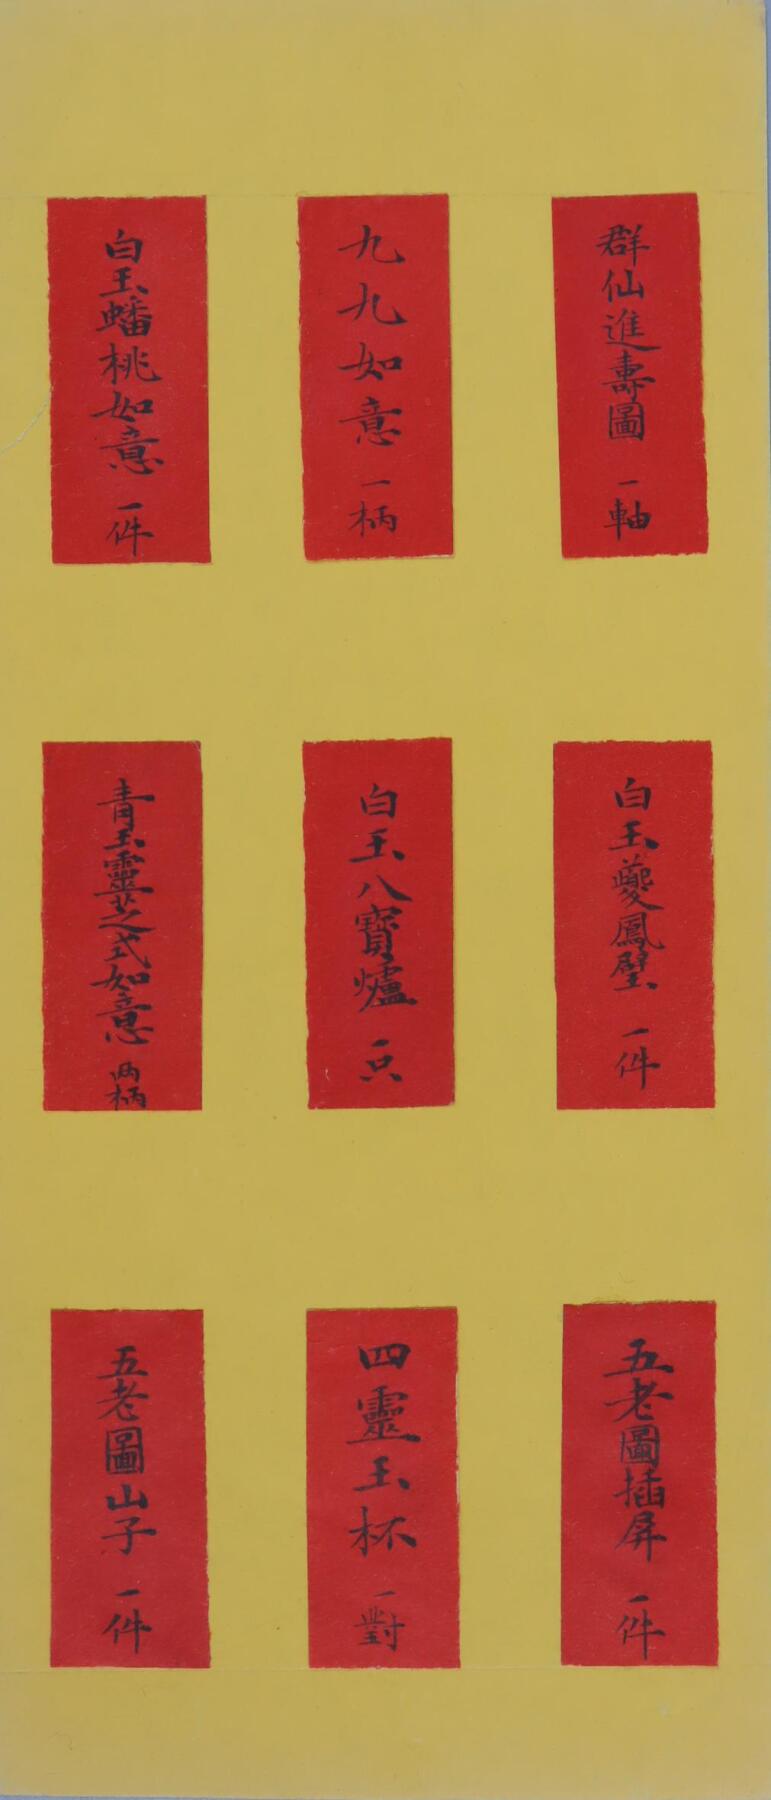 群仙進壽圖 一軸
九九如意 一柄
白玉蟠桃如意 一件
白玉夔鳳璧 一件
白玉八寶爐 一只
青玉靈芝式如意 兩柄
五老圖插屏 一件
四靈玉杯 一對
五老圖山子 一件